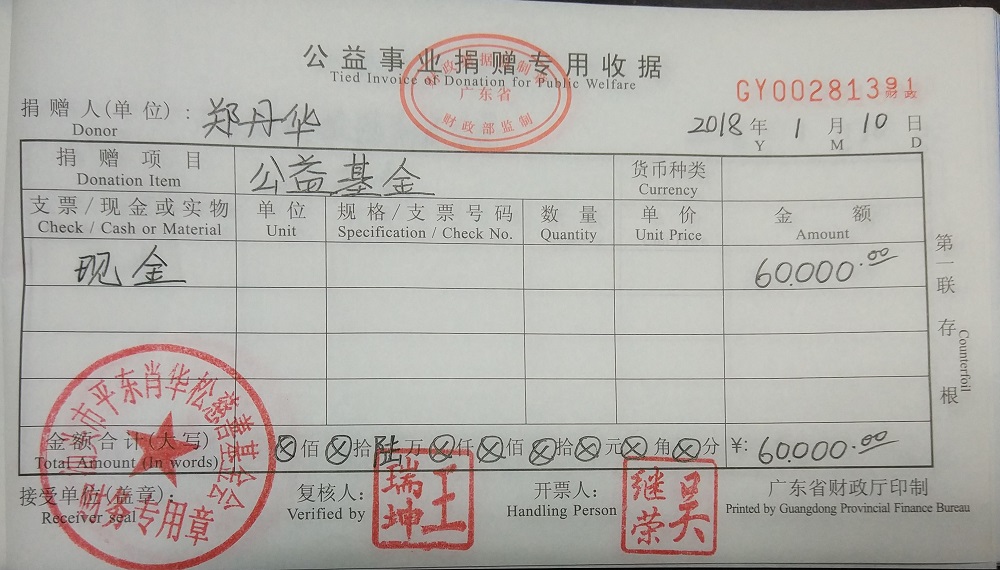 公益事业捐赠专用收据
Tied Invoice of Donation for Public Welfare
广东省
财政部监制
GY00281391
财政
捐赠人(单位):郑丹华
Donor
2018年1月10日
Y M D
捐赠项目 公益基金 货币种类
Donation Item Currency
支票/现金或实物 单位 规格/支票号码 数量 单价 金额
Check / Cash or Material Unit Specification / Check No. Quantity Unit Price Amount
现金 60.000.00
第一联存根
Counterfoil
金额合计(大写) 佰 拾 陆万 仟 佰 拾 元 角 分 ¥: 60.000.00
Total Amount (In words)
接受单位(盖章): 复核人: 开票人: 广东省财政厅印制
Receiver seal Verified by Handling Person Printed by Guangdong Provincial Finance Bureau
市平东肖华松慈善基金会
财务专用章
王瑞坤
吴继荣